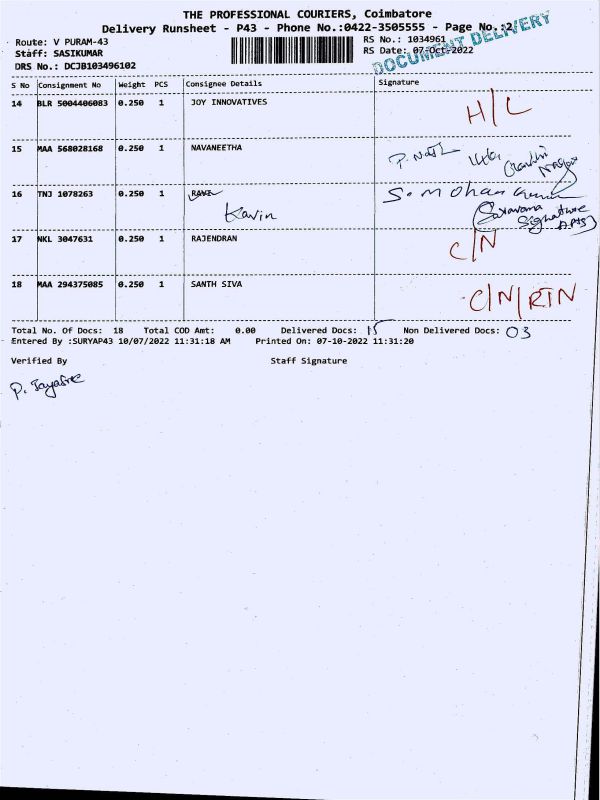 THE PROFESSIONAL COURIERS, Coimbatore
Delivery Runsheet - P43 - Phone No.:0422-3505555 - Page No.:2
DOCUMENT DELIVERY
Route: V PURAM-43
RS No.: 1034961
Staff: SASIKUMAR
RS Date: 07-Oct-2022
DRS No.: DCJB103496102
S No Consignment No Weight PCS Consignee Details Signature
14 BLR 5004406083 0.250 1 JOY INNOVATIVES H/L
15 MAA 568028168 0.250 1 NAVANEETHA
16 TNJ 1078263 0.250 1 RAVI S. Mohan
Kavin Saravana
Signature
APTS
17 NKL 3047631 0.250 1 RAJENDRAN C/N
18 MAA 294375085 0.250 1 SANTH SIVA C/N/RTN
Total No. Of Docs: 18 Total COD Amt: 0.00 Delivered Docs: 15 Non Delivered Docs: 03
Entered By :SURYAP43 10/07/2022 11:31:18 AM Printed On: 07-10-2022 11:31:20
Verified By Staff Signature
P. Jayasree